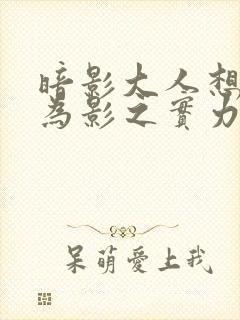 暗影大人想
為影之實力
呆萌愛上我